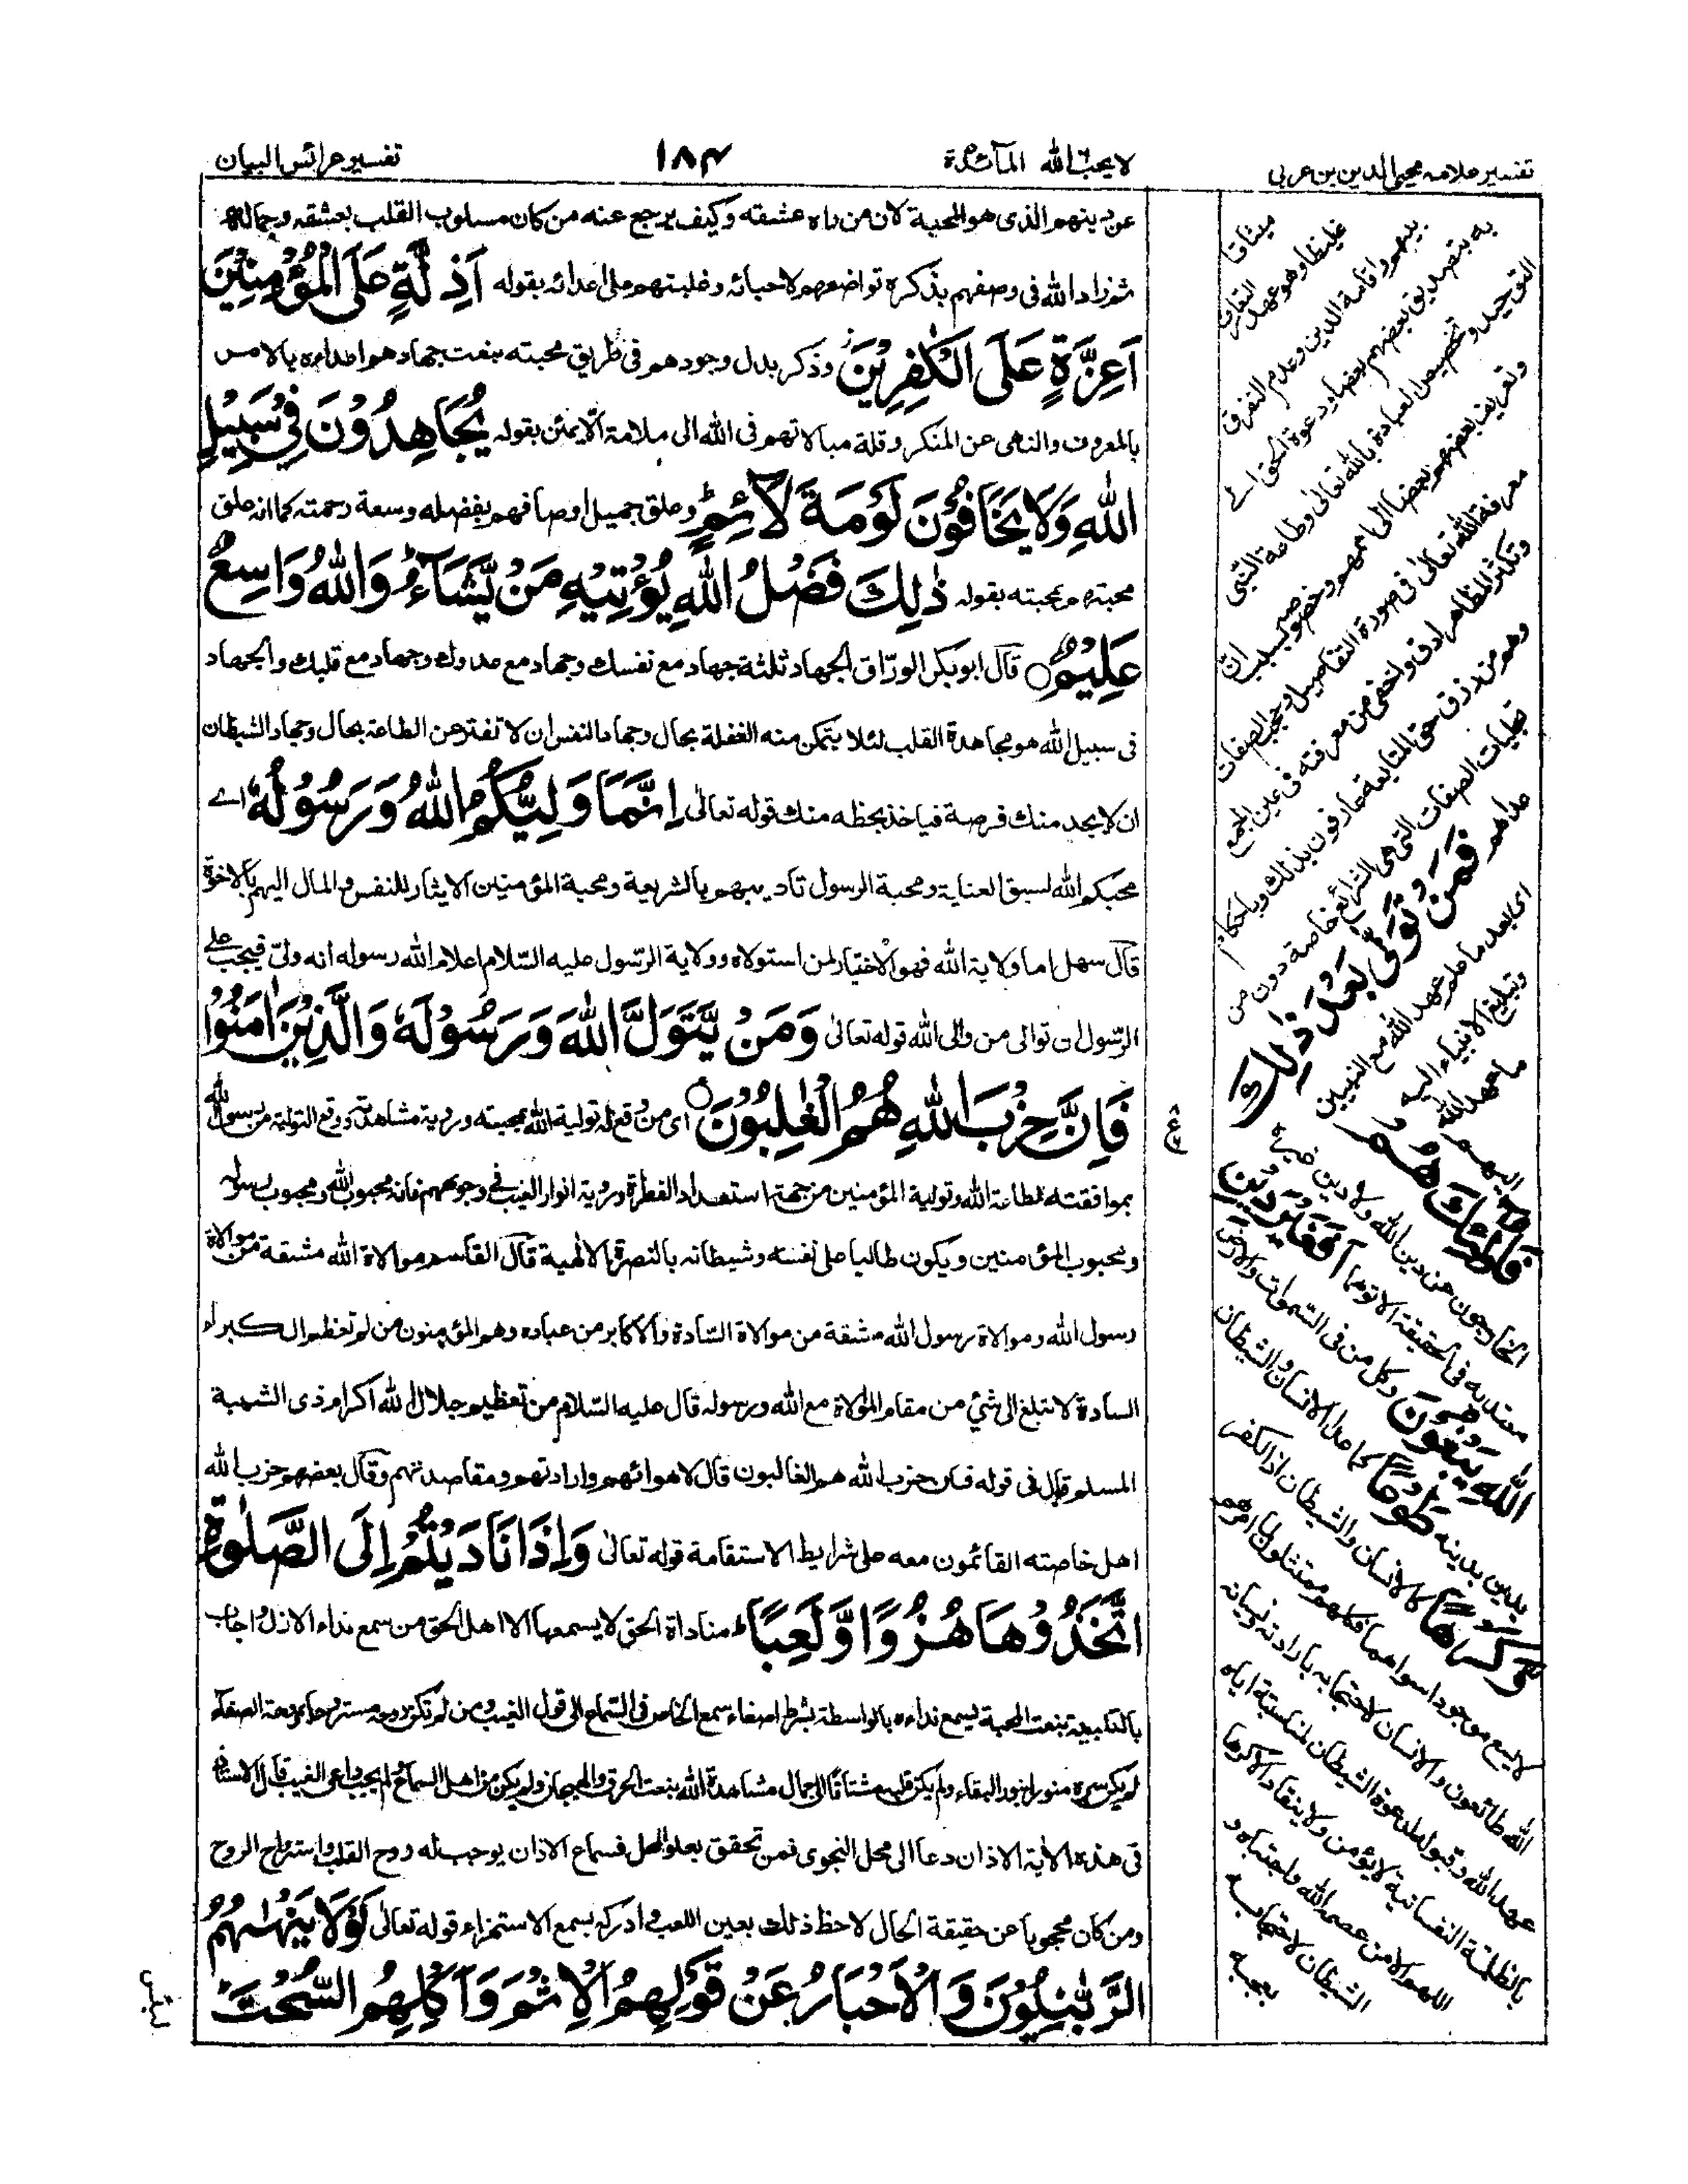 تفسير علامه محيى الدين بن عربى
لا يحب الله المآئدة
١٨۴
تفسير عرائس البيان
عن دينهم الذى هو المحبة لان من رباه عشقه وكيف يرجع عنه من كان مسلوب القلب بعشقه وجماله
ثم زاد الله فى وصفهم بذكره تواضعهم لاحبائه وغلبتهم على اعدائه بقوله اَذِلَّةٍ عَلَى الْمُؤْمِنِيْنَ
اَعِزَّةٍ عَلَى الْكٰفِرِيْنَ وذكر بدل وجودهم فى طريق محبته بنعت جهادهم اعداءه بالامر
بالمعروف والناهى عن المنكر وقلة مبالاتهم فى الله الى ملامة اللائمين بقوله يُجَاهِدُوْنَ فِيْ سَبِيْلِ
اللهِ وَلَا يَخَافُوْنَ لَوْمَةَ لَآئِمٍ وعلق جميل اوصافهم بفضله وسعة رحمته كما انه علق
محبتهم بمحبته بقوله ذٰلِكَ فَضْلُ اللهِ يُؤْتِيْهِ مَنْ يَّشَآءُ وَاللهُ وَاسِعٌ
عَلِيْمٌ قال ابو بكر الورّاق الجهاد ثلثة جهاد مع نفسك وجهاد مع عدوك وجهاد مع قلبك والجهاد
فى سبيل الله هو مجاهدة القلب لئلا يتمكن منه الغفلة بحال وجهاد النفس ان لا تفتر عن الطاعة بحال وجهاد الشيطان
ان لا يجد منك فرصة فياخذ بحظه منك قوله تعالى اِنَّمَا وَلِيُّكُمُ اللهُ وَرَسُوْلُهٗ اے
محبكم الله لسبق العناية ومحبة الرسول تاديبهم بالشريعة ومحبة المؤمنين الايثار للنفس والمال اليهم بالاخوة
قال سهل اما ولاية الله فهو الاختيار لمن استولاه وولاية الرّسول عليه السّلام اعلام الله رسوله انه ولىّ فيجب على
الرّسول ان توالى من والى الله قوله تعالى وَمَنْ يَّتَوَلَّ اللهَ وَرَسُوْلَهٗ وَالَّذِيْنَ اٰمَنُوْا
فَاِنَّ حِزْبَ اللهِ هُمُ الْغٰلِبُوْنَ اى من وقع له تولية الله بمحبته ورؤية مشاهدته ووقع التولية من رسول الله
بموافقته لطاعة الله وتولية المؤمنين من جهة استعداد الفطرة ورؤية انوار الغيب فى وجوههم فانه محبوب الله ومحبوب رسوله
ومحبوب المؤمنين ويكون طالبا على نفسه وشيطانه بالنصرة الالهية قال القاسم موالاة الله مشقة من موالاة
رسول الله وموالاة رسول الله مشقة من موالاة السّادة والاكابر من عباده وهم المؤمنون من لم تعظم الكبراء
السادة لا تبلغ الى شئ من مقام الموالاة مع الله ورسوله قال عليه السّلام من تعظيم جلال الله اكرام ذى الشيبة
المسلم قال فى قوله فان حزب الله هم الغالبون قال لاهوائهم وارادتهم ومقاصدتهم وقال بعضهم حزب الله
اهل خاصته القائمون معه على شرايط الاستقامة قوله تعالى وَاِذَا نَادَيْتُمْ اِلَى الصَّلٰوةِ
اتَّخَذُوْهَا هُزُوًا وَّلَعِبًا مناداة الحق لا يسمعها الا اهل الحق من سمع نداء الازل واجاب
بالتلبية بنعت المحبة يسمع نداءه بالواسطة بشرط اصغاء سمع الخاص فى السّماع الى قول الغيب ومن لم تكن روحه
لم يكن سره منورا بنور البقاء ولم يكن قلبه مشتاقا الى جمال مشاهدة الله بنعت الحرقة والهيجان ولم يكن من اهل السماع لم يجب داعى الغيب قال الاستاذ
فى هذه الاٰية الاذان دعا الى محل النجوى فمن تحقق بعلو المحل فسماع الاذان يوجب له روح القلب واسترواح الروح
ومن كان محجوبا عن حقيقة الحال لاحظ ذلك بعين اللعب وادركه بسمع الاستهزاء قوله تعالى لَوْلَا يَنْهٰهُمُ
الرَّبّٰنِيُّوْنَ وَالْاَحْبَارُ عَنْ قَوْلِهِمُ الْاِثْمَ وَاَكْلِهِمُ السُّحْتَ
ميثاقا
غليظا وهو عهد التعارف
بينهم واقامة الدين وعدم التفرق
به بتصديق بعضهم بعضا ودعوة الخلق الى
التوحيد وتخصيص العبادة بالله تعالى وطاعة النبى
وتعريف بعضهم بعضا الى اممهم
معرفة الله تعالى فى صورة التفاصيل وحجب الصفات
وتكثر المظاهر ادق واخفى من معرفته فى عين الجمع
وهم من رزق حق المتابعة عارفون بذلك وباحكام
تجليات الصفات التى هى الشرائع خاصة دون من
عداهم فَمَنْ تَوَلّٰى بَعْدَ ذٰلِكَ
اى بعد ما علم عهد الله مع النبيين
وتبليغ الانبياء اليه
ما عهد الله
اليهم
فَاُولٰٓئِكَ هُمُ الْفٰسِقُوْنَ
الخارجون عن دين الله ولا دين غيره
معتد به فى الحقيقة الا توهما اَفَغَيْرَ دِيْنِ
اللهِ يَبْغُوْنَ وكل من فى السّموات والارض
يدين بدينه طَوْعًا كما عدا الانسان والشيطان
وَّكَرْهًا كالانسان والشيطان اذ الكفر
لا يسع موجودا سواهما فكلهم ممتثلون لما امرهم
الله طائعون والانسان لاحتجابه بارادته ونسيانه
عهد الله وقبوله لدعوة الشيطان لمناسبته اياه
بالظلمة النفسانية لا يؤمن ولا ينقاد الا كرها
اللهم الا من عصمه الله واجتباه و
الشيطان لاحتجابه
بعجبه